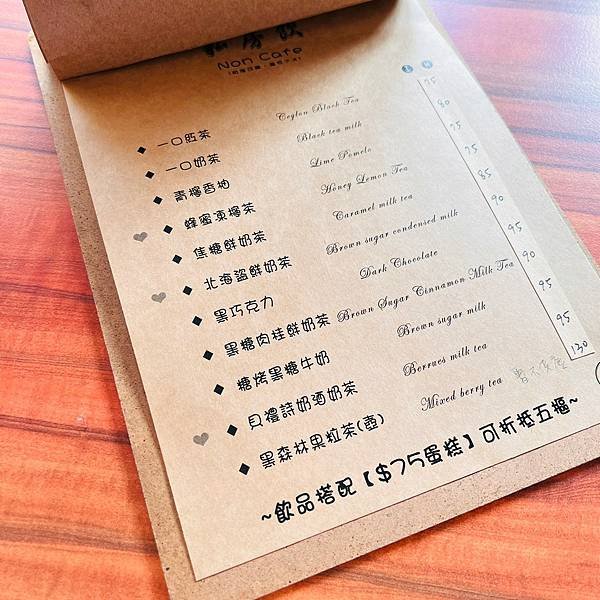 Non Cafe
一口紅茶 Ceylon Black Tea 75
一口奶茶 Black tea milk 80
青檸香柚 Lime Pomelo 75
蜂蜜凍檸茶 Honey Lemon Tea 75
焦糖鮮奶茶 Caramel milk tea 85
北海盜鮮奶茶 Brown sugar condensed milk 90
黑巧克力 Dark Chocolate 95
黑糖肉桂鮮奶茶 Brown Sugar Cinnamon Milk Tea 90
糖烤黑糖牛奶 Brown sugar milk 95
貝禮詩奶酒奶茶 Berrues milk tea 95
黑森林果粒茶(壺) Mixed berry tea 130
~飲品搭配【$75蛋糕】可折抵五福~